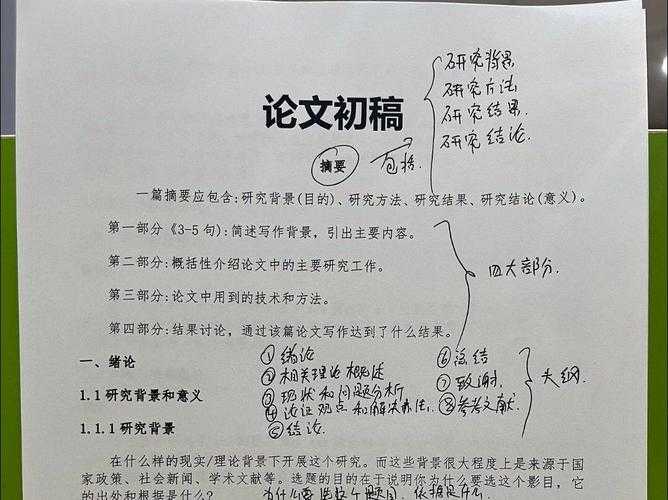 论文初稿
研究背景
研究方法
研究结果
研究结论.
摘要 包括.
一篇摘要应包含:研究背景(目的)、研究方法、研究结果、研究结论(意义)。
第一部分《3-5句):简述写作背景，引出主要内容。
第二部分:概括性介绍论文中的主要研究工作。
第三部分:论文中用到的技术和方法。
第四部分:结果讨论，通过该篇论文写作达到了什么结果。
四大部分.
一、绪论
①绪论
②相关理论概述
③现状和问题分析
④论证观点和解决办法.
⑤结论.
⑥总结
⑦致谢.
⑧参考文献.
大纲
1.1 研究背景和意义
1.1.1 研究背景
在什么样的现实/理论背景下开展这个研究。而这些背景很大程度上是来源于国
家政策、社会新闻、学术文献等。选题的目的在于说明你为什么要选这个影目，它
的出处和根据是什么?
为什么要选这个题目.依据是什么